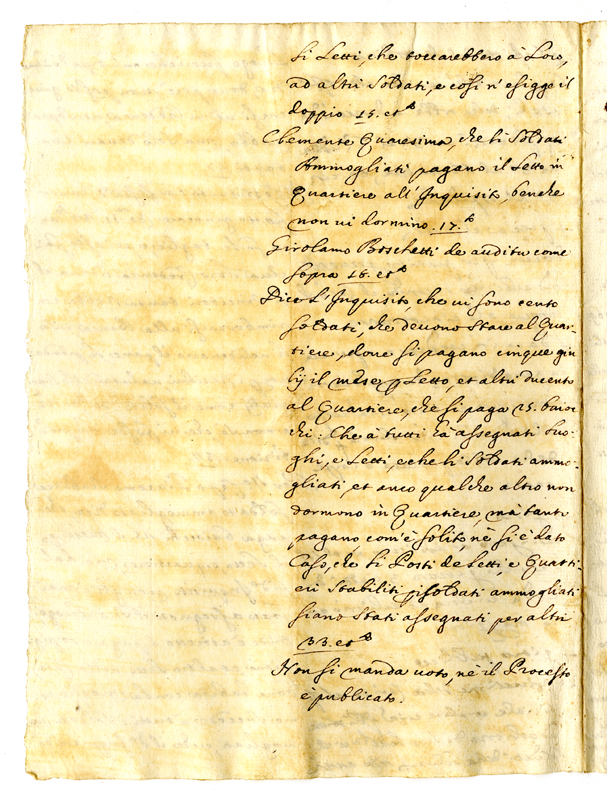 li Letti, che toccarebbero à Loro,
ad altri Soldati, e così n'esigge il
doppio 15. et
Clemente Quaresima, che li Soldati
Ammogliati pagano il Letto in
Quartiere all'Inquisito, benche
non ui dormino. 17.
Girolamo Boschetti de auditu come
sopra 16. et
Dice L'Inquisito, che ui sono cento
soldati, che deuono stare al Quar-
tiere, doue si pagano cinque giu
lij il mese p Letto, et altri ducento
al Quartiere, che si paga 25. baioc
chi: Che à tutti hà assegnati luo-
ghi, e Letti, e che li Soldati ammo-
gliati, et anco qualche altro non
dormono in Quartiere, mà tanto
pagano, com'è solito, nè si è dato
Caso, che li Posti de Letti, e Quarti-
eri stabiliti p i soldati ammogliati
siano stati assegnati per altri
33. et
Non si manda uoto, nè il Processo
è publicato.